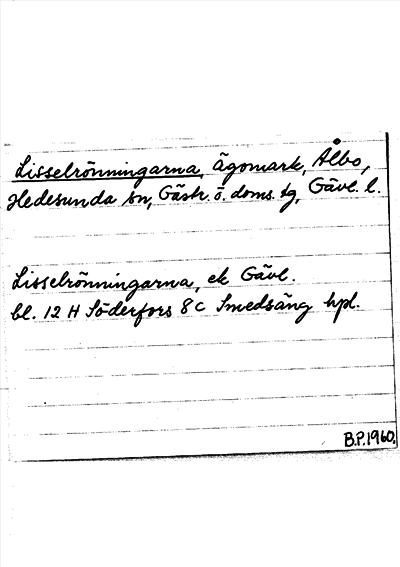 Lisselrönningarna, Ägomark, Ålbo,
Hedesunda sn, Gästr. ö. doms. tg, Gävl. l.
Lisselrönningarna, ek Gävl.
bl. 12 H Söderfors 8 c Smedsäng hpl.
B.P.1960.